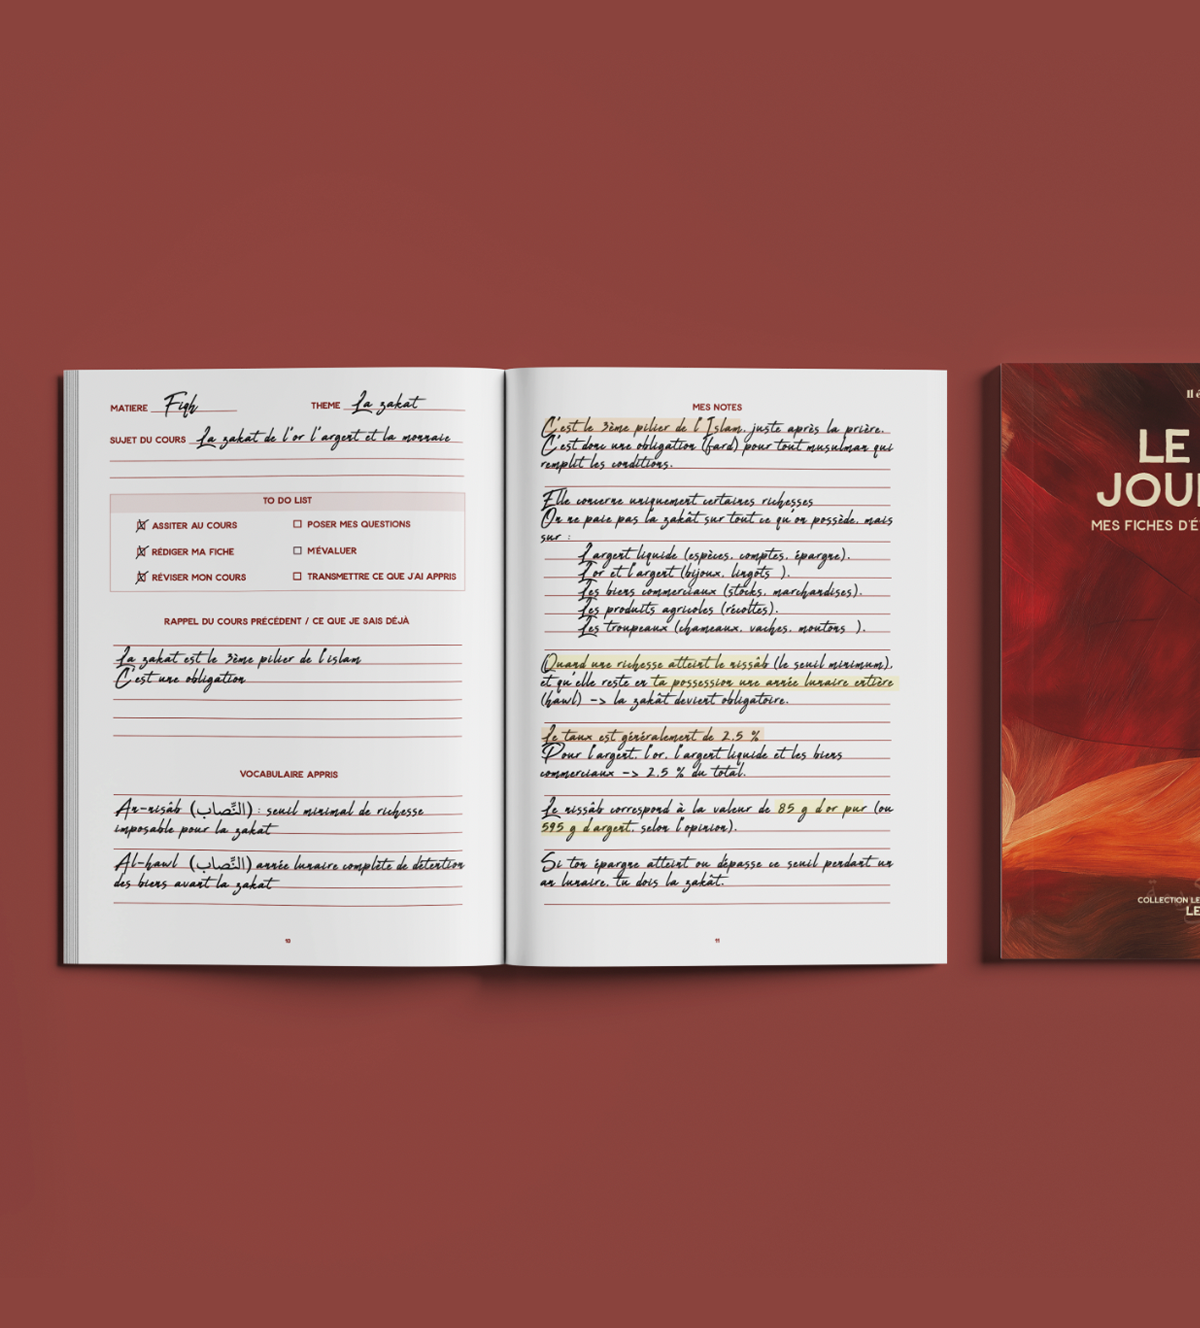 MATIERE Fiqh THEME La zakat
SUJET DU COURS La zakat de l'or l'argent et la monnaie
TO DO LIST
ASSITER AU COURS
POSER MES QUESTIONS
RÉDIGER MA FICHE
M'ÉVALUER
RÉVISER MON COURS
TRANSMETTRE CE QUE J'AI APPRIS
RAPPEL DU COURS PRÉCÉDENT / CE QUE JE SAIS DÉJÀ
La zakat est le 3ème pilier de l'islam
C'est une obligation
VOCABULAIRE APPRIS
An-nisâb (النِّصاب) : seuil minimal de richesse
imposable pour la zakat
Al-hawl (النِّصاب) année lunaire complète de détention
des biens avant la zakat
10
MES NOTES
C'est le 3ème pilier de l'Islam, juste après la prière.
C'est donc une obligation (fard) pour tout musulman qui
remplit les conditions.
Elle concerne uniquement certaines richesses
On ne paie pas la zakât sur tout ce qu'on possède, mais
sur :
L'argent liquide (espèces, comptes, épargne).
L'or et l'argent (bijoux, lingots ).
Les biens commerciaux (stocks, marchandises).
Les produits agricoles (récoltes).
Les troupeaux (chameaux, vaches, moutons ).
Quand une richesse atteint le nissâb (le seuil minimum),
et qu'elle reste en ta possession une année lunaire entière
(hawl) -> la zakât devient obligatoire.
Le taux est généralement de 2,5 %
Pour l'argent, l'or, l'argent liquide et les biens
commerciaux -> 2,5 % du total.
Le nissâb correspond à la valeur de 85 g d'or pur (ou
595 g d'argent, selon l'opinion).
Si ton épargne atteint ou dépasse ce seuil pendant un
an lunaire, tu dois la zakât.
11
LE
JOU
MES FICHES D'É
COLLECTION LE
LE